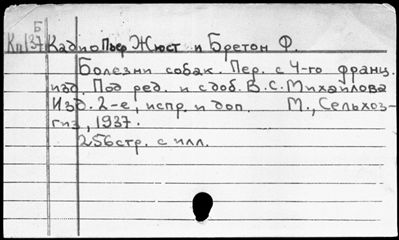 Б
Кп/37 Кадио Пьер Жюст и Бретон Ф.
Болезни собак. Пер. с 4-го франц.
изд. Под ред. и с доб. В.С. Михайлова
Изд. 2-е, испр. и доп. М., Сельхоз-
гиз, 1937.
256 стр. с илл.